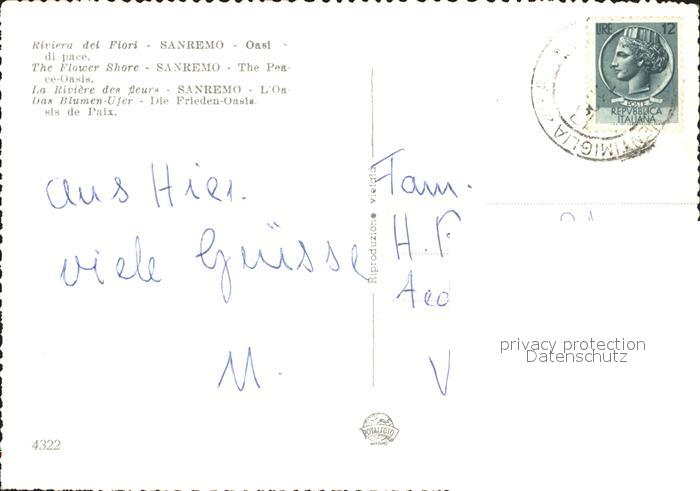 Riviera dei Fiori - SANREMO - Oasi
di pace.
The Flower Shore - SANREMO - The Pea-
ce-Oasis.
La Rivière des fleurs - SANREMO - L'Oa-
Das Blumen-Ufer - Die Frieden-Oasis.
sis de Paix.
aus Hier.
viele Grüsse
M.
Riproduzione vietata
Fam.
H.
V
LIRE 12
POSTE
REPVBBLICA
ITALIANA
VENTIMIGLIA
privacy protection
Datenschutz
ROTALFOTO
MILANO
4322